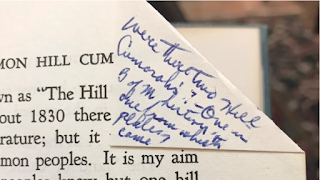 MON HILL CUM
wn as “The Hill
out 1830 there
rature; but it
mon peoples. It is my aim
knew but one hill
Were there two Hill
Cumorahs? - One in
B of M
one from which
plates
came